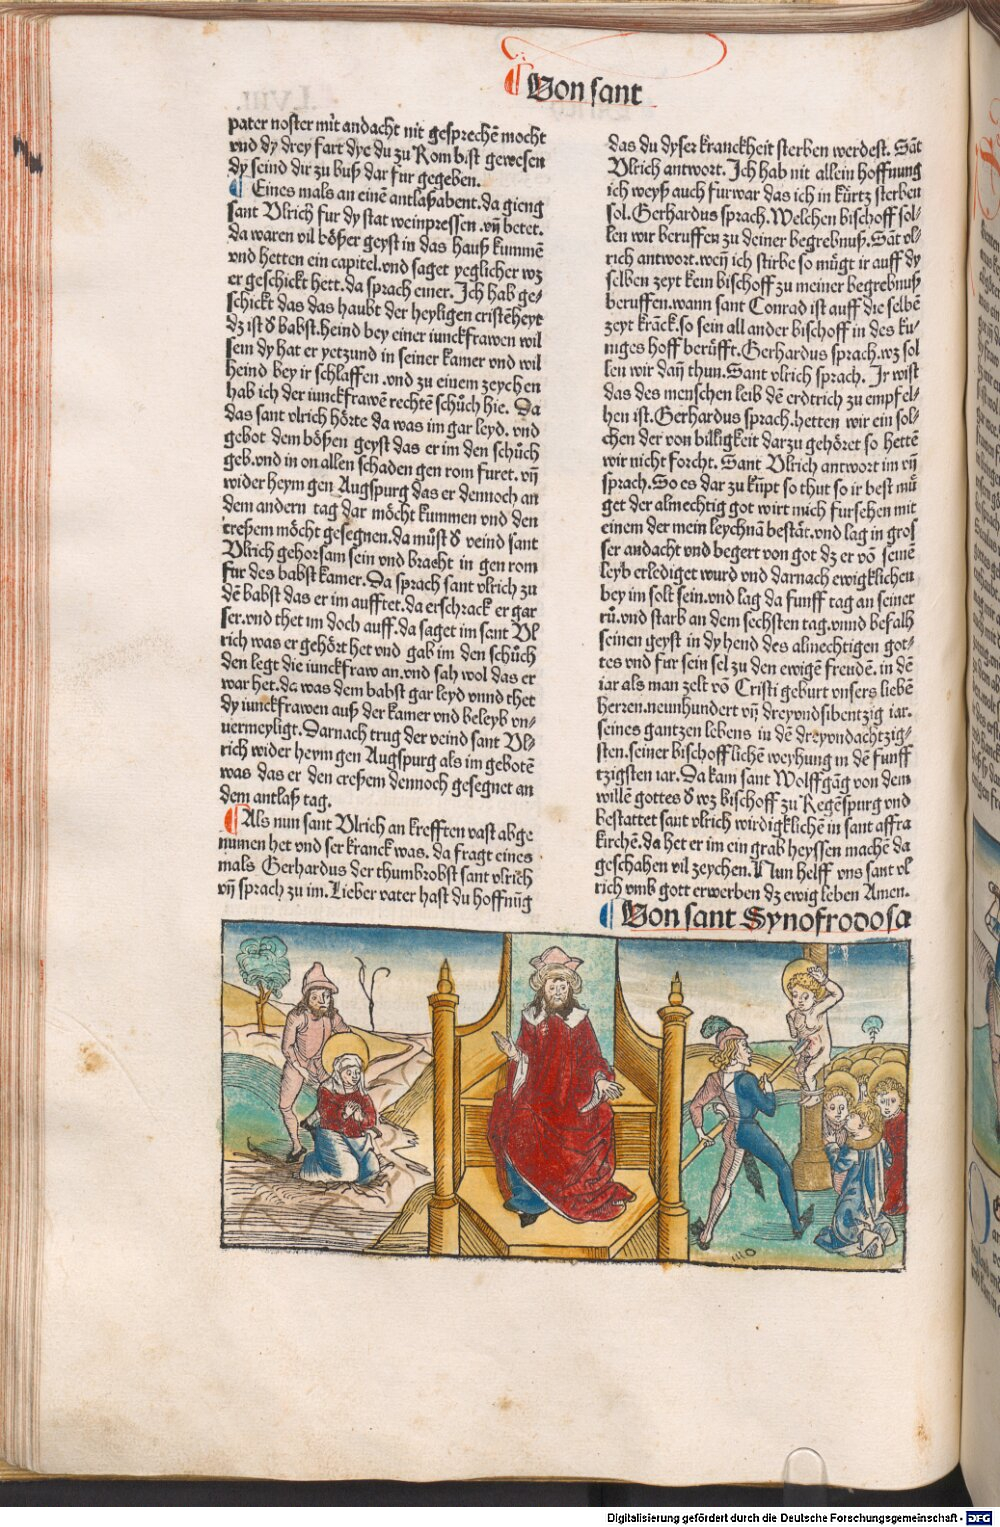 Von sant
pater noster mit andacht nit gesprechē mocht
vnd dy drey fart dye du zu Rom bist gewesen
dy seind dir zu buß dar fur gegeben.
Eines mals an einē antlaßabent. da gieng
sant Vlrich fur dy stat weinpressen. vñ betet.
da waren vil bößer geyst in das hauß kummē
vnd hetten ein capitel. vnd saget yeglicher wz
er geschickt hett. da sprach einer. Ich hab ge-
schickt das das haubt der heyligen cristēheyt
dz ist ð babst. heind bey einer iunckfrawen wil
sein dy hat er yetzund in seiner kamer vnd wil
heind bey ir schlaffen. vnd zu einem zeychen
hab ich der iunckfrawē rechtē schůch hie. Da
das sant vlrich hörte da was im gar leyd. vnd
gebot dem bößen geyst das er im den schůch
geb. vnd in on allen schaden gen rom furet. vñ
wider heym gen Augspurg das er dennoch an
dem andern tag dar möcht kummen vnd den
creßem möcht gesegnen. da můst ð veind sant
Vlrich gehorsam sein vnd bracht in gen rom
fur des babst kamer. Da sprach sant vlrich zu
dē babst das er im aufftet. da erschrack er gar
ser. vnd thet im doch auff. da saget im sant Vl
rich was er gehört het vnd gab im den schůch
den legt die iunckfraw an. vnd sah wol das er
war het. da was dem babst gar leyd vnnd thet
dy iunckfrawen auß der kamer vnd beleyb vn-
uermeyligt. Darnach trug der veind sant Vl-
rich wider heym gen Augspurg als im gebotē
was das er den creßem dennoch gesegnet an
dem antlaß tag.
Als nun sant Vlrich an krefften vast abge
numen het vnd ser kranck was. da fragt eines
mals Gerhardus der thumbrobst sant vlrich
vñ sprach zu im. Lieber vater hast du hoffnūg
das du dyser kranckheit sterben werdest. Sāt
Vlrich antwort. Ich hab nit allein hoffnung
ich weyß auch furwar das ich in kürtz sterben
sol. Gerhardus sprach. Welchen bischoff sol-
len wir beruffen zu deiner begrebnuß. Sāt vl-
rich antwort. weñ ich stirbe so mügt ir auff dy
selben zeyt kein bischoff zu meiner begrebnuß
beruffen. wann sant Conrad ist auff die selbē
zeyt krāck. so sein all ander bischoff in des ku-
niges hoff berüfft. Gerhardus sprach. wz sol
len wir dañ thun. Sant vlrich sprach. Ir wist
das des menschen leib dē erdtrich zu empfel-
hen ist. Gerhardus sprach. hetten wir ein sol-
chen der von billigkeit darzu gehöret so hettē
wir nicht forcht. Sant Vlrich antwort im vñ
sprach. So es dar zu kūpt so thut so ir best mü
get der almechtig got wirt mich fursehen mit
einem der mein leychnā bestät. vnd lag in gros
ser andacht vnd begert von got dz er vō seinē
leyb erlediget wurd vnd darnach ewigklichen
bey im solt sein. vnd lag da funff tag an seiner
rů. vnd starb an dem sechsten tag. vnnd befalh
seinen geyst in dy hend des almechtigen got-
tes vnd fur sein sel zu den ewigē freudē. in dē
iar als man zelt vō Cristi geburt vnsers liebē
herren. neunhundert vñ dreyvndsibentzig iar.
seines gantzen lebens in dē dreyvndachtzig-
sten. seiner bischofflichē weyhung in dē funff
tzigsten iar. Da kam sant Wolffgāg von dem
willē gottes ð wz bischoff zu Regēspurg vnd
bestattet sant vlrich wirdigklichē in sant affra
kirchē. da het er im ein grab heyssen machē da
geschahen vil zeychen. Nun helff vns sant vl
rich vmb gott erwerben dz ewig leben Amen.
Von sant Synofrodosa
Digitalisierung gefördert durch die Deutsche Forschungsgemeinschaft - DFG